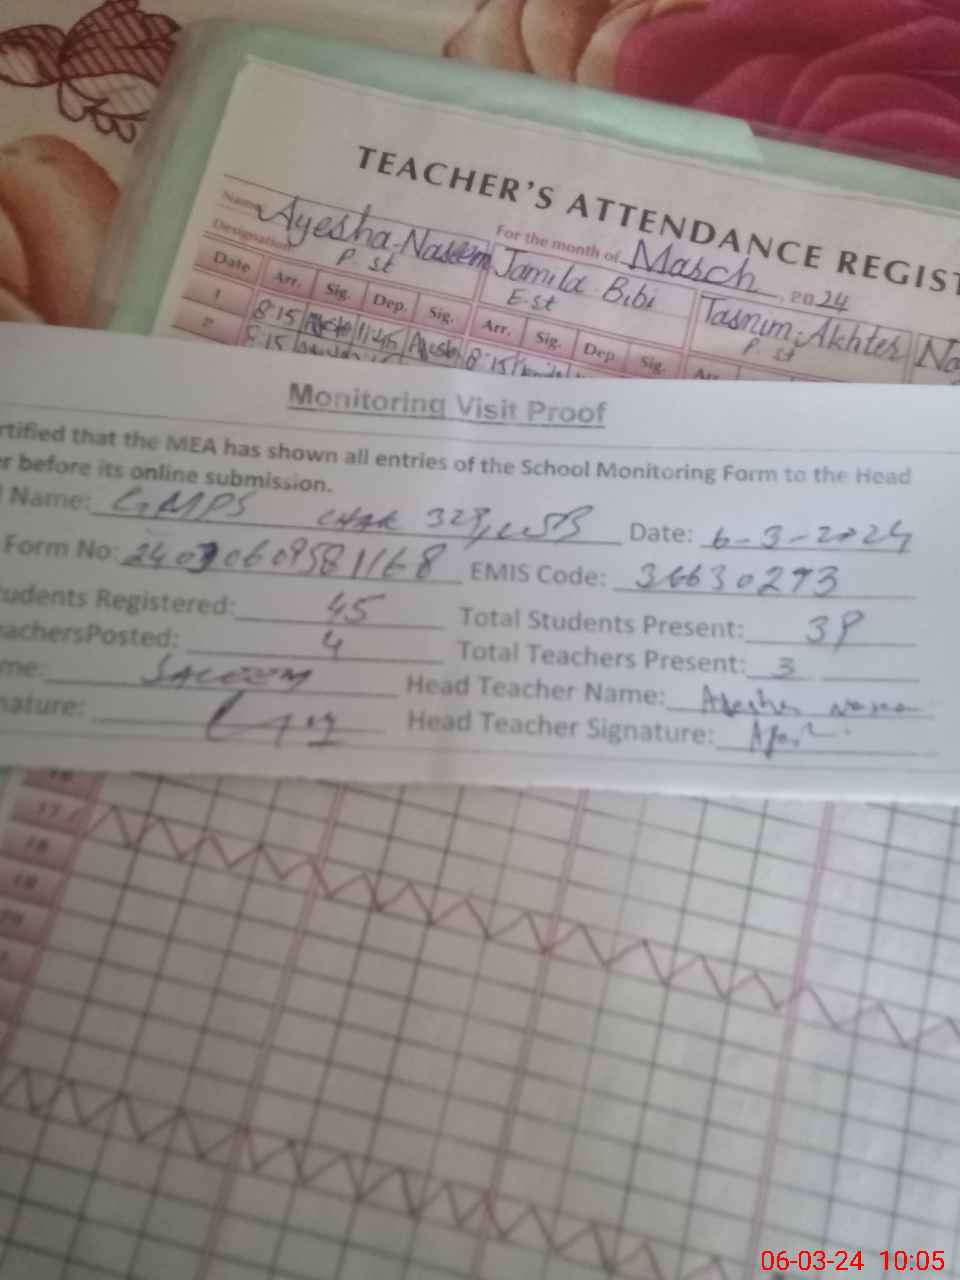 TEACHER'S ATTENDANCE REGIST
Name Ayesha Naseem For the month of March, 2024
Designation P.st Jamila Bibi Tasnim Akhter Na
E.st P.st
Date Arr. Sig. Dep. Sig. Arr. Sig. Dep. Sig. Arr
1 8:15 11:45 8:15
2 8:15
Monitoring Visit Proof
rtified that the MEA has shown all entries of the School Monitoring Form to the Head
er before its online submission.
l Name: GMPS CHAK 329, WB Date: 6-3-2024
Form No: EMIS Code: 36630293
tudents Registered: 45 Total Students Present: 39
eachersPosted: 4 Total Teachers Present: 3
me: SALEEM Head Teacher Name: Ayesha Naseem
nature: Head Teacher Signature:
17
18
19
20
06-03-24 10:05